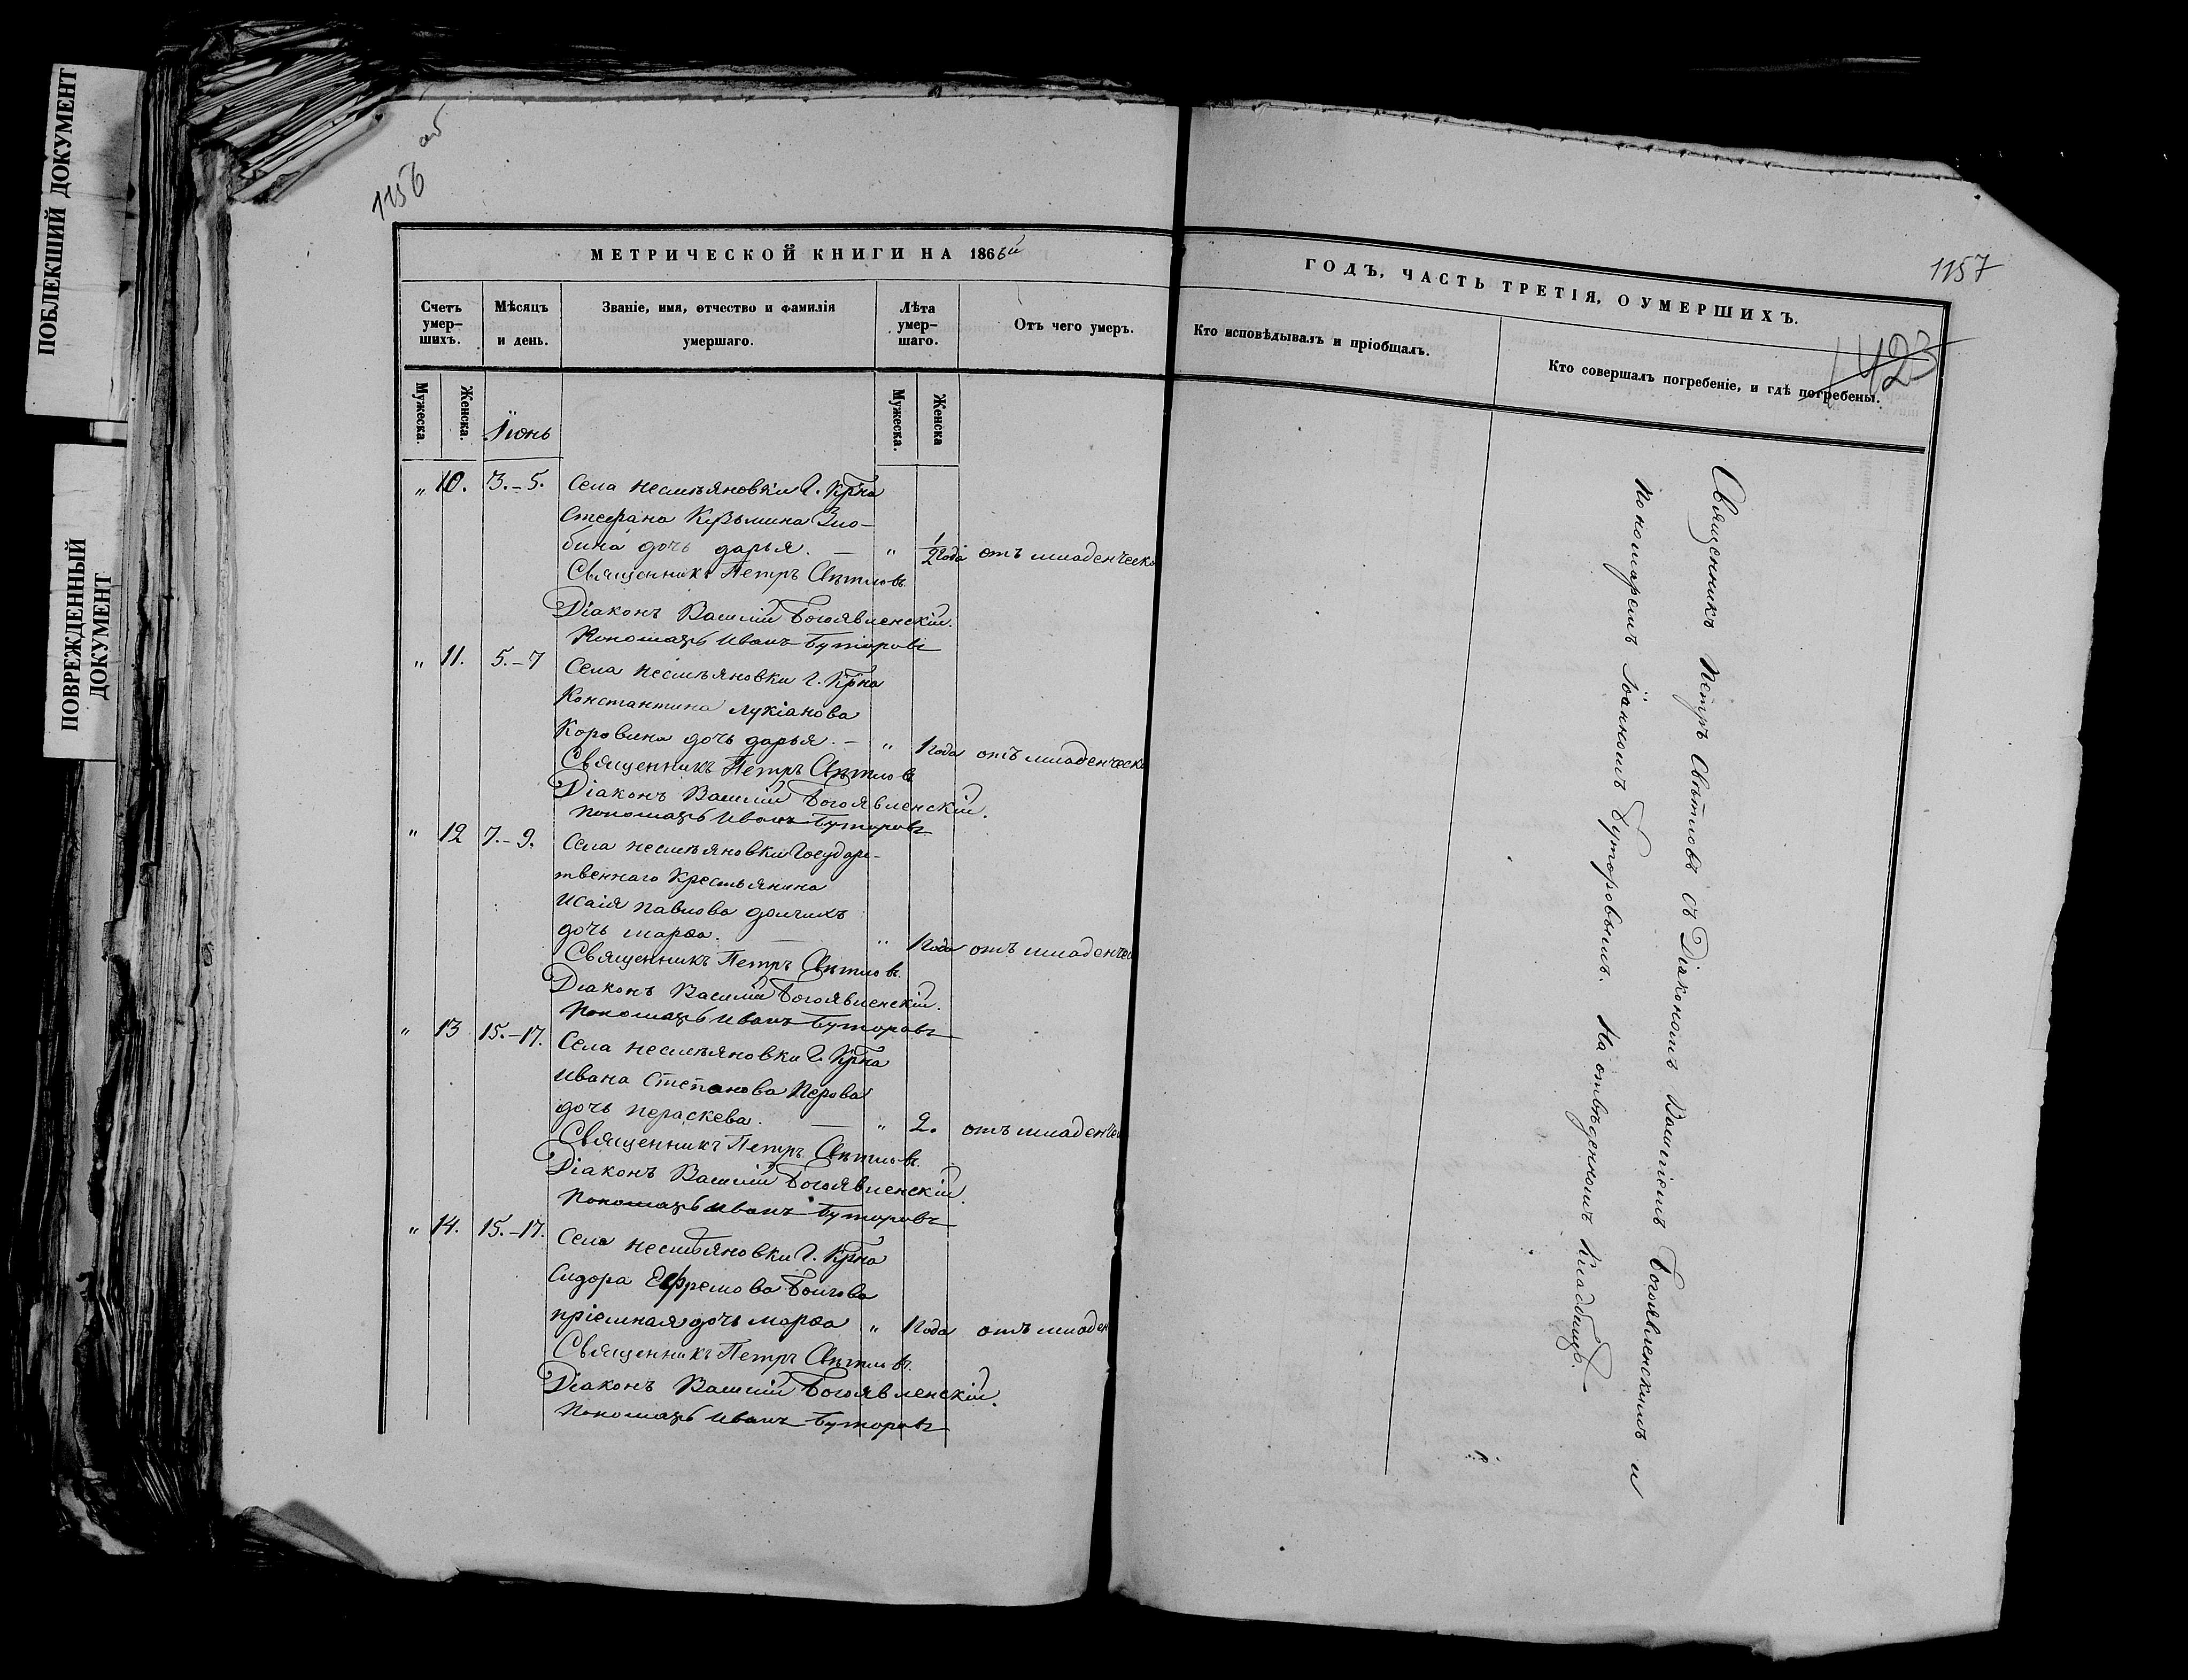 ПОБЛЕКШИЙ ДОКУМЕНТ
ПОВРЕЖДЕННЫЙ
ДОКУМЕНТ
1156 об
МЕТРИЧЕСКОЙ КНИГИ НА 1866й
Счетъ умер-шихъ.
Мѣсяцъ и день.
Званіе, имя, отчество и фамилія умершаго.
Лѣта умер-шаго.
Отъ чего умеръ.
Мужеска.
Женска.
Іюнь
Мужеска.
Женска
„ 10. 3.-5. Села несмѣяновки Г. Кр͠на
Стефана Кузьмина Зло-
бина дочь дарья. — „ 1/2 года отъ младенческ
Священникъ Петръ Свѣтловъ.
Діаконъ Василій Богоявленскій.
Пономарь Иванъ Буторовъ
„ 11. 5.-7 Села несмѣяновки Г. Кр͠на
Константина Лукіанова
Коровина дочь дарья. — „ 1 года отъ младенческ
Священникъ Петръ Свѣтловъ
Діаконъ Василій Богоявленскій.
Пономарь Иванъ Буторовъ
„ 12 7.-9. Села несмѣяновки Государс-
твеннаго Крестьянина
Исаія павлова долгихъ
дочь марѳа. — „ 1 года отъ младенчес
Священникъ Петръ Свѣтловъ.
Діаконъ Василій Богоявленскій.
Пономарь Иванъ Буторовъ
„ 13 15.-17. Села несмѣяновки Г. Кр͠на
Ивана Степанова Перова
дочь параскева. — „ 2. отъ младенче
Священникъ Петръ Свѣтловъ.
Діаконъ Василій Богоявленскій.
Пономарь Иванъ Буторовъ
„ 14. 15.-17. Села несмѣяновки Г. Кр͠на
Сидора Ефремова
пріемная дочь марѳа „ 1 года отъ младен
Священникъ Петръ Свѣтловъ.
Діаконъ Василій Богоявленскій.
Пономарь Иванъ Буторовъ
1157
ГОДЪ, ЧАСТЬ ТРЕТІЯ, О УМЕРШИХЪ.
423
Кто исповѣдывалъ и пріобщалъ.
Кто совершалъ погребеніе, и гдѣ погребены.
Священникъ Петръ Свѣтловъ съ Діакономъ Василіемъ Богоявленскимъ и
пономаремъ Іоанномъ Буторовымъ. На отведенномъ Кладбищѣ.